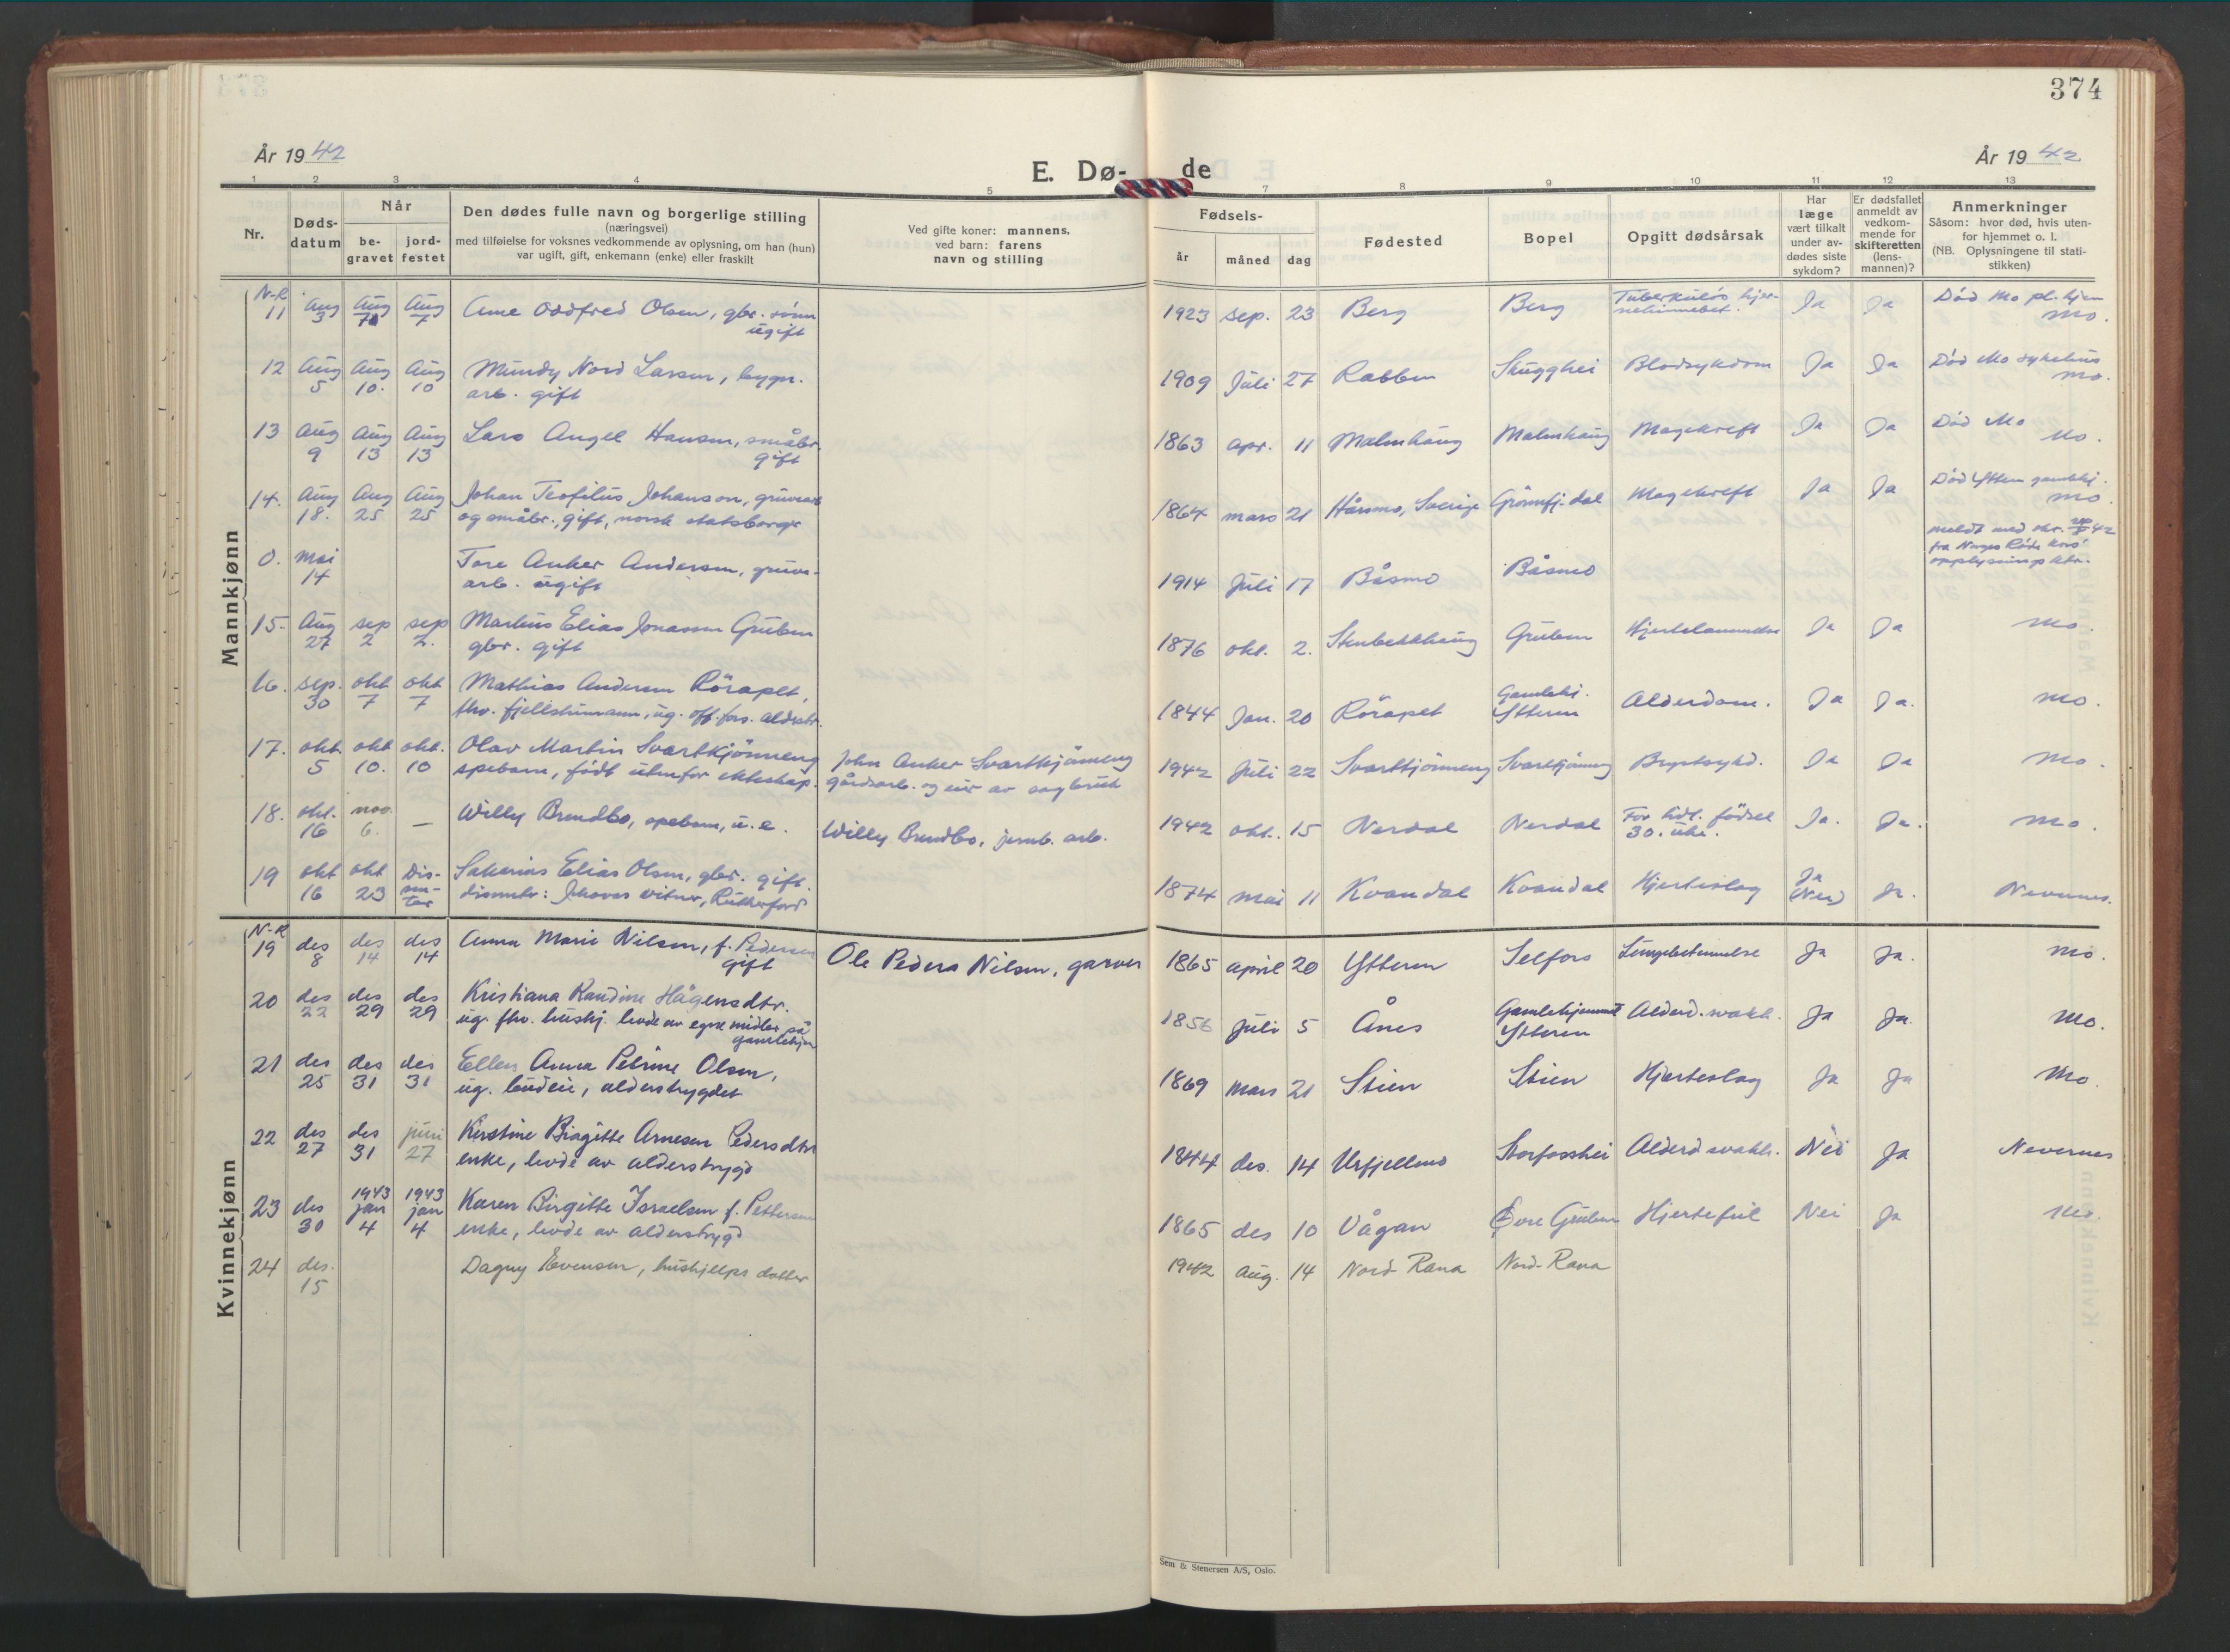 374
År 1942
E. Dø-
de
År 1942
1 2 3 4 5 7 8 9 10 11 12 13
Nr.
Døds-
datum
Når
be-
gravet
jord-
festet
Den dødes fulle navn og borgerlige stilling
(næringsvei)
med tilføielse for voksnes vedkommende av oplysning, om han (hun)
var ugift, gift, enkemann (enke) eller fraskilt
Ved gifte koner: mannens,
ved barn: farens
navn og stilling
Fødsels-
år måned dag
Fødested
Bopel
Opgitt dødsårsak
Har
læge
vært tilkalt
under av-
dødes siste
sykdom?
Er dødsfallet
anmeldt av
vedkom-
mende for
skifteretten
(lens-
mannen)?
Anmerkninger
Såsom: hvor død, hvis uten-
for hjemmet o. l.
(NB. Oplysningene til stati-
stikken)
Mannkjønn
N-R
11 Aug 3 Aug 7 Aug 7 Arne Oddfred Olsen, gbr. sønn
ugift
1923 sep. 23 Berg Berg Tuberkuløs hjer-
nehinnebet. Ja Ja Død Mo pl. hjem
Mo.
12 Aug 5 Aug 10. Aug 10 Mundy Nord Larsen, bygn.
arb. gift
1909 Juli 27 Rabben Skugghei Blodsykdom Ja Ja Død Mo sykehus
Mo.
13 Aug 9 Aug 13 Aug 13 Lars Angel Hansen, småbr.
gift
1863 apr. 11 Malmhaug Malmhaug Magekreft Ja Ja Død Mo
Mo.
14. Aug 18. Aug 25 Aug 25 Johan Teofilus Johanson, gruvearb
og småbr., gift, norsk statsborger
1864 mars 21 Hårsmo, Sverige Grönnfj.dal Magekreft Ja Ja Død Ytteren gamlehj.
Mo.
0. Mai 14 Tore Anker Andersen, gruve-
arb. ugift
1914 Juli 17 Båsmo Båsmo meldt med skr.
fra Norges Røde Kors'
opplysningsktr.
15. Aug 27 sep 2 sep 2. Martius Elias Jonassen Gruben
gbr. gift
1876 okt. 2. Stenbekkhaug Gruben Hjertelammelse Ja Ja Mo.
16. sep. 30 okt 7 okt 7 Mathias Andersen Rörapet,
fhv. fjellstumann, ug. off. fors. alderstr.
1844 Jan. 20 Rörapet Gamlehj.
Ytteren Alderdom. Ja Ja. Mo.
17. okt 5 okt 10. okt. 10 Olav Martin Svartkjönneng
spebarn, født utenfor ekteskap.
John Anker Svartkjönneng
gårdsarb. og eier av sagbruk
1942 Juli 22 Svarttjönneng Svarttjönneng Brystsykd. Ja Ja Mo.
18. okt. 16 nov. 6. — Willy Brendbo, spebarn, u. e.
Willy Brendbo, jernb. arb.
1942 okt. 15 Nerdal Nerdal For tidl. födsel
30. uke. Ja. Ja. Mo.
19 okt 16 okt 23 Dis-
sen-
ter Sakarias Elias Olsen, gbr. gift.
dissenter: Jehovas vitner, Rutherford
1874 mai 11 Kvandal Kvandal Hjerteslag Ja
(Nei) Ja. Nevernes.
Kvinnekjønn
N-R
19 des 8 des 14 des 14 Anna Marie Nilsen, f. Pedersen
gift
Ole Peder Nilsen, garver
1865 april 20 Ytteren Selfors Lungebetennelse Ja Ja. Mo.
20 des 22 des 29 des 29 Kristiana Randine Hågensdtr.
ug. fhv. hushj. levde av egne midler på
gamlehjem
1856 Juli 5 Ånes Gamlehjemmet
Ytteren Alderd. svakh. Ja Ja. Mo.
21 des 25 des 31 des 31 Ellen Anna Petrine Olsen,
ug. budeie, alderstrygdet
1869 Mars 21 Stien Stien Hjerteslag Ja Ja Mo.
22 des 27 des 31 juni 27 Kirstine Birgitte Arnesen Pedersdtr
enke, levde av alderstrygd
1844 des. 14 Urfjellmo Storfosshei Alderd svakh. Nei Ja Nevernes
23 des 30 1943 jan 4 1943 jan 4 Karen Birgitte Israelsen f. Pettersen
enke, levde av alderstrygd
1865 des 10 Vågan Övre Gruben Hjertefeil Nei Ja Mo.
24 des. 15 Dagny Evensen, hushjelps datter
1942 Aug. 14 Nord-Rana Nord-Rana
Sem & Stenersen A/S, Oslo.